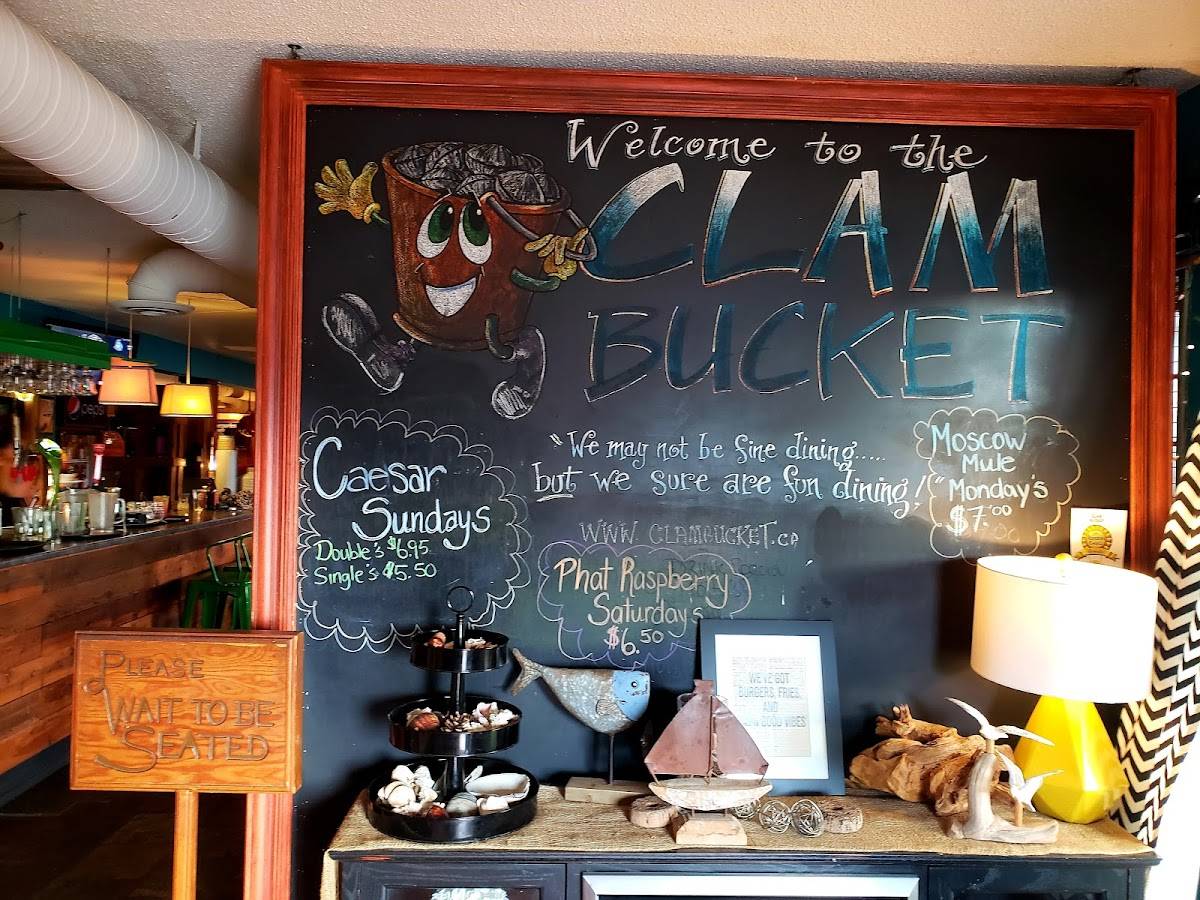 Welcome to the
CLAM
BUCKET
Caesar
Sundays
Double's $6.95
Single's $5.50
"We may not be fine dining.....
but we sure are fun dining!"
WWW.CLAMBUCKET.ca
Phat Raspberry
Saturdays
$6.50
Moscow
Mule
Monday's
$7.00
PLEASE
WAIT TO BE
SEATED
WE'VE GOT
BURGERS, FRIES,
AND
GOOD VIBES
pepsi